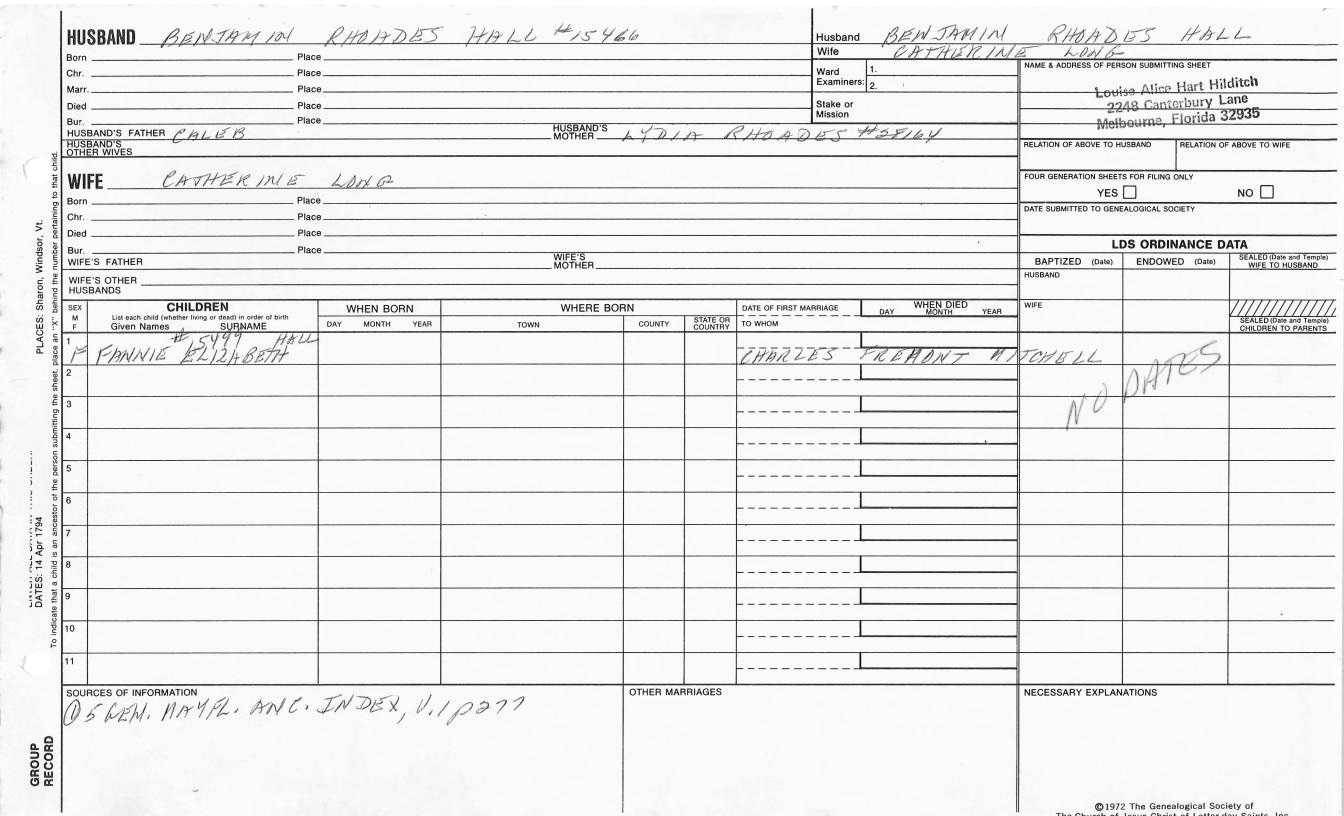 HUSBAND BENJAMIN RHOADES HALL #15466
Born Place
Chr. Place
Marr. Place
Died Place
Bur. Place
HUSBAND'S FATHER CALEB HUSBAND'S MOTHER LYDIA RHOADES
HUSBAND'S OTHER WIVES
Husband BENJAMIN RHOADES HALL
Wife CATHERINE LONG
Ward Examiners: 1.
2.
Stake or Mission
NAME & ADDRESS OF PERSON SUBMITTING SHEET
Louise Alice Hart Hilditch
2248 Canterbury Lane
Melbourne, Florida 32935
RELATION OF ABOVE TO HUSBAND RELATION OF ABOVE TO WIFE
FOUR GENERATION SHEETS FOR FILING ONLY
YES NO
DATE SUBMITTED TO GENEALOGICAL SOCIETY
WIFE CATHERINE LONG
Born Place
Chr. Place
Died Place
Bur. Place
WIFE'S FATHER WIFE'S MOTHER
WIFE'S OTHER HUSBANDS
LDS ORDINANCE DATA
BAPTIZED (Date) ENDOWED (Date) SEALED (Date and Temple) WIFE TO HUSBAND
HUSBAND
WIFE
SEALED (Date and Temple) CHILDREN TO PARENTS
SEX M F
CHILDREN
List each child (whether living or dead) in order of birth
Given Names SURNAME
WHEN BORN
DAY MONTH YEAR
WHERE BORN
TOWN COUNTY STATE OR COUNTRY
DATE OF FIRST MARRIAGE
TO WHOM
WHEN DIED
DAY MONTH YEAR
1 #15499 HALL
F FANNIE ELIZABETH CHARLES FREMONT MITCHELL
NO DATES
2
3
4
5
6
7
8
9
10
11
SOURCES OF INFORMATION
① 5 GEN. MAYFL. ANC. INDEX, V.1 p277
OTHER MARRIAGES
NECESSARY EXPLANATIONS
©1972 The Genealogical Society of
The Church of Jesus Christ of Latter-day Saints, Inc.
PLACES: Sharon, Windsor, Vt.
DATES: 14 Apr 1794
To indicate that a child is an ancestor of the person submitting the sheet, place an "X" behind the number pertaining to that child.
GROUP RECORD